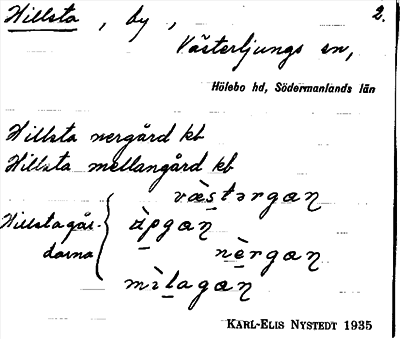 Hillsta, by, 2.
Västerljungs sn,
Hölebo hd, Södermanlands län
Hillsta nergård kb
Hillsta mellangård kb
væ̀stərgaɳ
Hillstagår-
darna
ùpgaɳ
nèrgaɳ
mìlagaɳ
KARL-ELIS NYSTEDT 1935